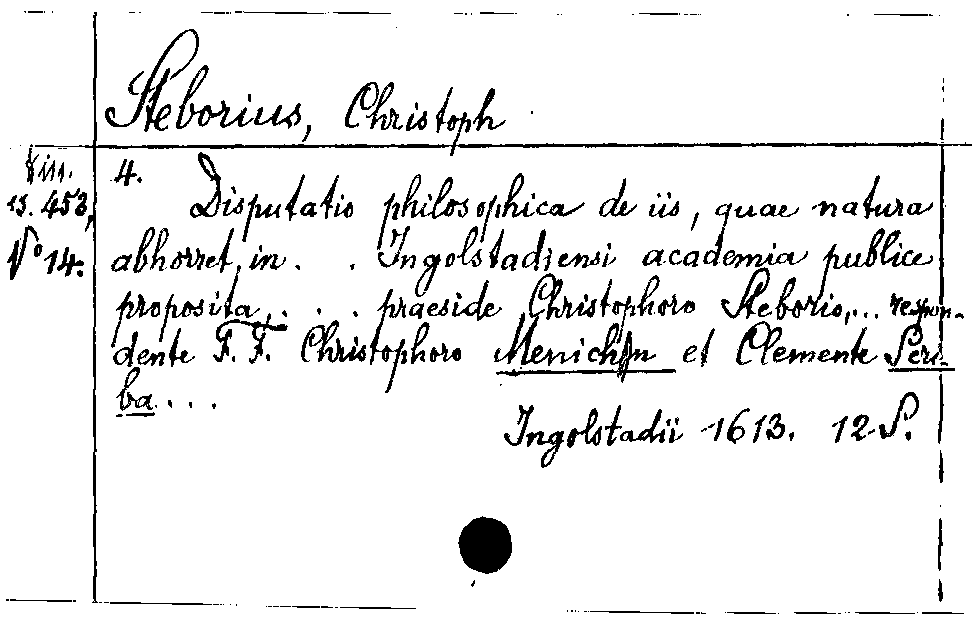 Steborius, Christoph
4.
453,
No 14.
Disputatio philosophica de iis, quae natura
abhorret, in . . Ingolstadiensi academia publice
proposita, . . . praeside Christophoro Steborio, ... respon-
dente F. F. Christophoro Menichin et Clemente Scri-
ba . . .
Ingolstadii 1613. 12 S.